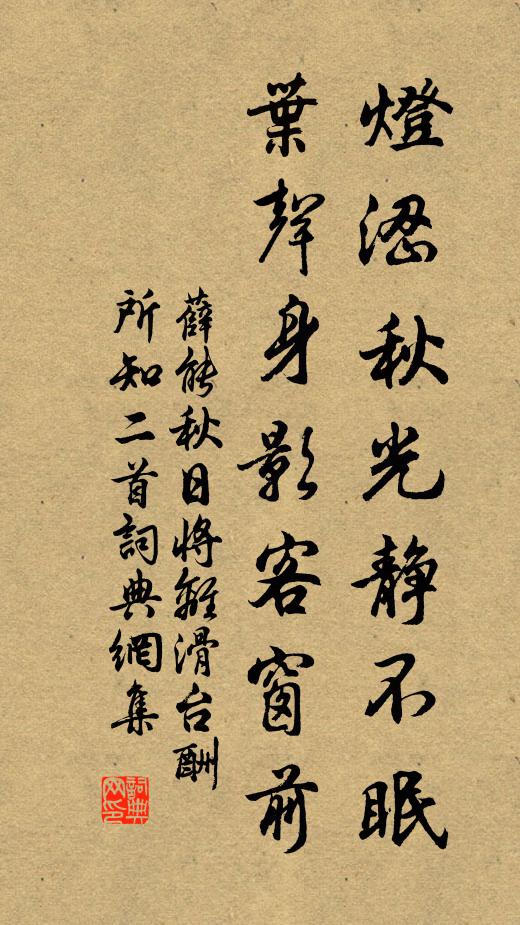 燈涩秋光静不眠
葉聲身影客窗前
薛能秋日将離滑台酬
所知二首詞典網集
詞典網印